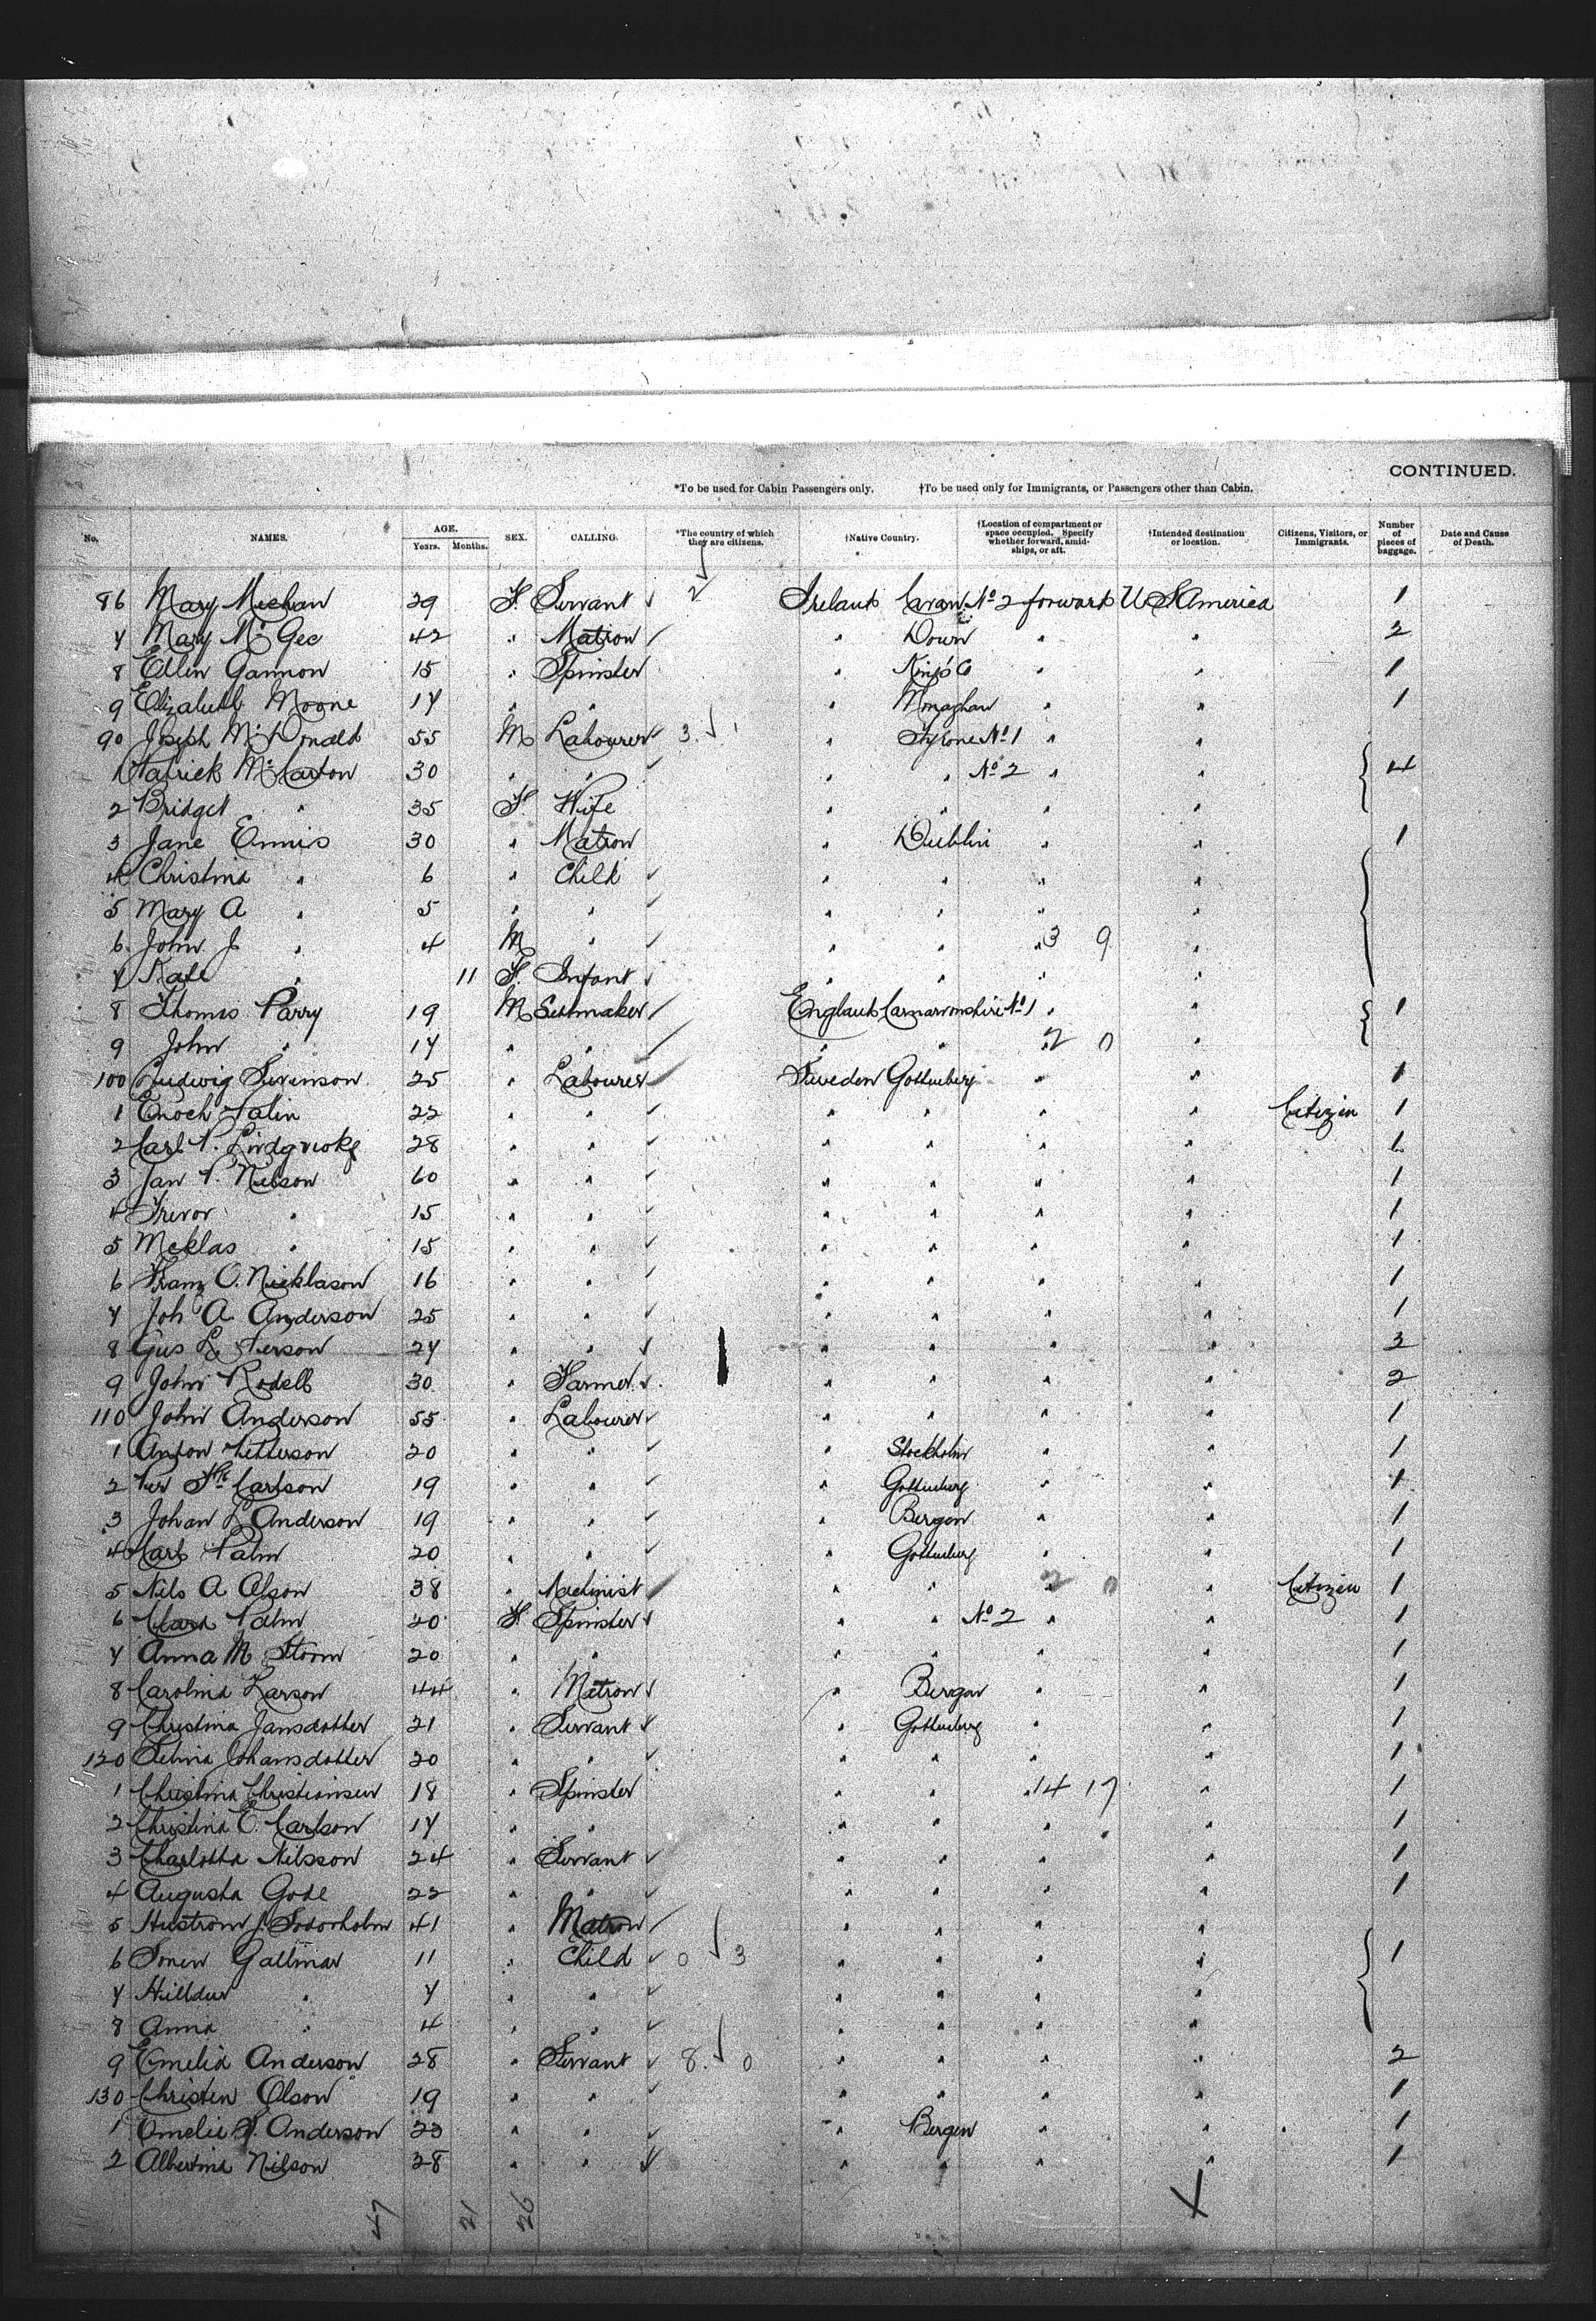 CONTINUED.
*To be used for Cabin Passengers only. †To be used only for Immigrants, or Passengers other than Cabin.
No. NAMES. AGE. Years. Months. SEX. CALLING. *The country of which they are citizens. †Native Country. †Location of compartment or space occupied. Specify whether forward, amidships, or aft. †Intended destination or location. Citizens, Visitors, or Immigrants. Number of pieces of baggage. Date and Cause of Death.
86 Mary Meehan 29 F. Servant 2 Ireland Cavan No 2 forward U S America 1
7 Mary McGee 42 " Matron " Down " " 2
8 Ellen Gannon 15 " Spinster " Kings Co " " 1
9 Elizabeth Moore 17 " " " Monaghan " " 1
90 Joseph McDonald 55 M Labourer 3 1 " Tyrone No 1 " "
1 Patrick McCarton 30 " " " " No 2 " " 4
2 Bridget " 35 F. Wife " " " "
3 Jane Ennis 30 " Matron " Dublin " " 1
4 Christina " 6 " Child " " " "
5 Mary A " 5 " " " " " "
6 John J " 4 M " " " " 3 9 "
7 Kate " 11 F. Infant " " " "
8 Thomas Parry 19 M Setmaker England Carnarvonshire No 1 " " 1
9 John " 17 " " " " 2 0 "
100 Ludwig Svenson 25 " Labourer Sweden Gothenberg " " 1
1 Enoch Talin 22 " " " " " " Citizen 1
2 Carl P. 28 " " " " " " 1
3 Jan P. Nilson 60 " " " " " " 1
4 Trevor " 15 " " " " " " 1
5 Meklas " 15 " " " " " " 1
6 Franz O. Nicklason 16 " " " " " " 1
7 Joh A. Anderson 25 " " " " " " 1
8 Gus L. 27 " " " " " " 2
9 John Rodell 30 " Farmer " " " " 2
110 John Anderson 55 " Labourer " " " " 1
1 Anton Petterson 20 " " " Stockholm " " 1
2 Per Carlson 19 " " " Gothenberg " " 1
3 Johan L Anderson 19 " " " Bergen " " 1
4 Karl Palm 20 " " " Gothenberg " " 1
5 Nils A Olson 38 " Machinist " " 2 0 " Citizen 1
6 Clara Palm 20 F. Spinster " " No 2 " " 1
7 Anna M Storm 20 " " " " " " 1
8 Carolina Larson 44 " Matron " Bergen " " 1
9 Christina Jansdotter 21 " Servant " Gothenberg " " 1
120 Selma Johansdotter 20 " " " " " " 1
1 Christina Christiansen 18 " Spinster " " 14 17 " 1
2 Christina C. Carlson 17 " " " " " " 1
3 Charlotta Nilsson 24 " Servant " " " " 1
4 Augusta Gode 22 " " " " " " 1
5 Hustrom J. Soderholm 41 " Matron " " " "
6 Sonen Gallmar 11 " Child 0 3 " " " " 1
7 Hilldur " 7 " " " " " "
8 Anna " 4 " " " " " "
9 Emelia Anderson 28 " Servant 8 0 " " " " 2
130 Christen Olson 19 " " " " " " 1
1 Emelie S. Anderson 23 " " " Bergen " " 1
2 Albertina Nilson 28 " " " " " " 1
47 21 26